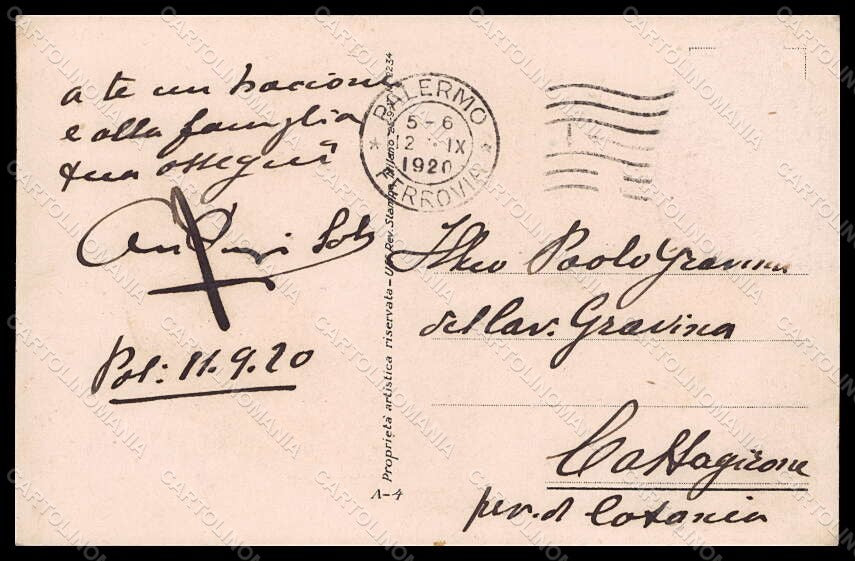 a te un bacione
e alla famiglia
tua ossequi
Pal: 11.9.20
PALERMO
5-6
12 IX
1920
FERROVIA
Proprietà artistica riservata - Uff. Rev. Stampa Milano
Paolo Gravina
del Cav. Gravina
Caltagirone
prov. di Catania
A-4
CARTOLINOMANIA